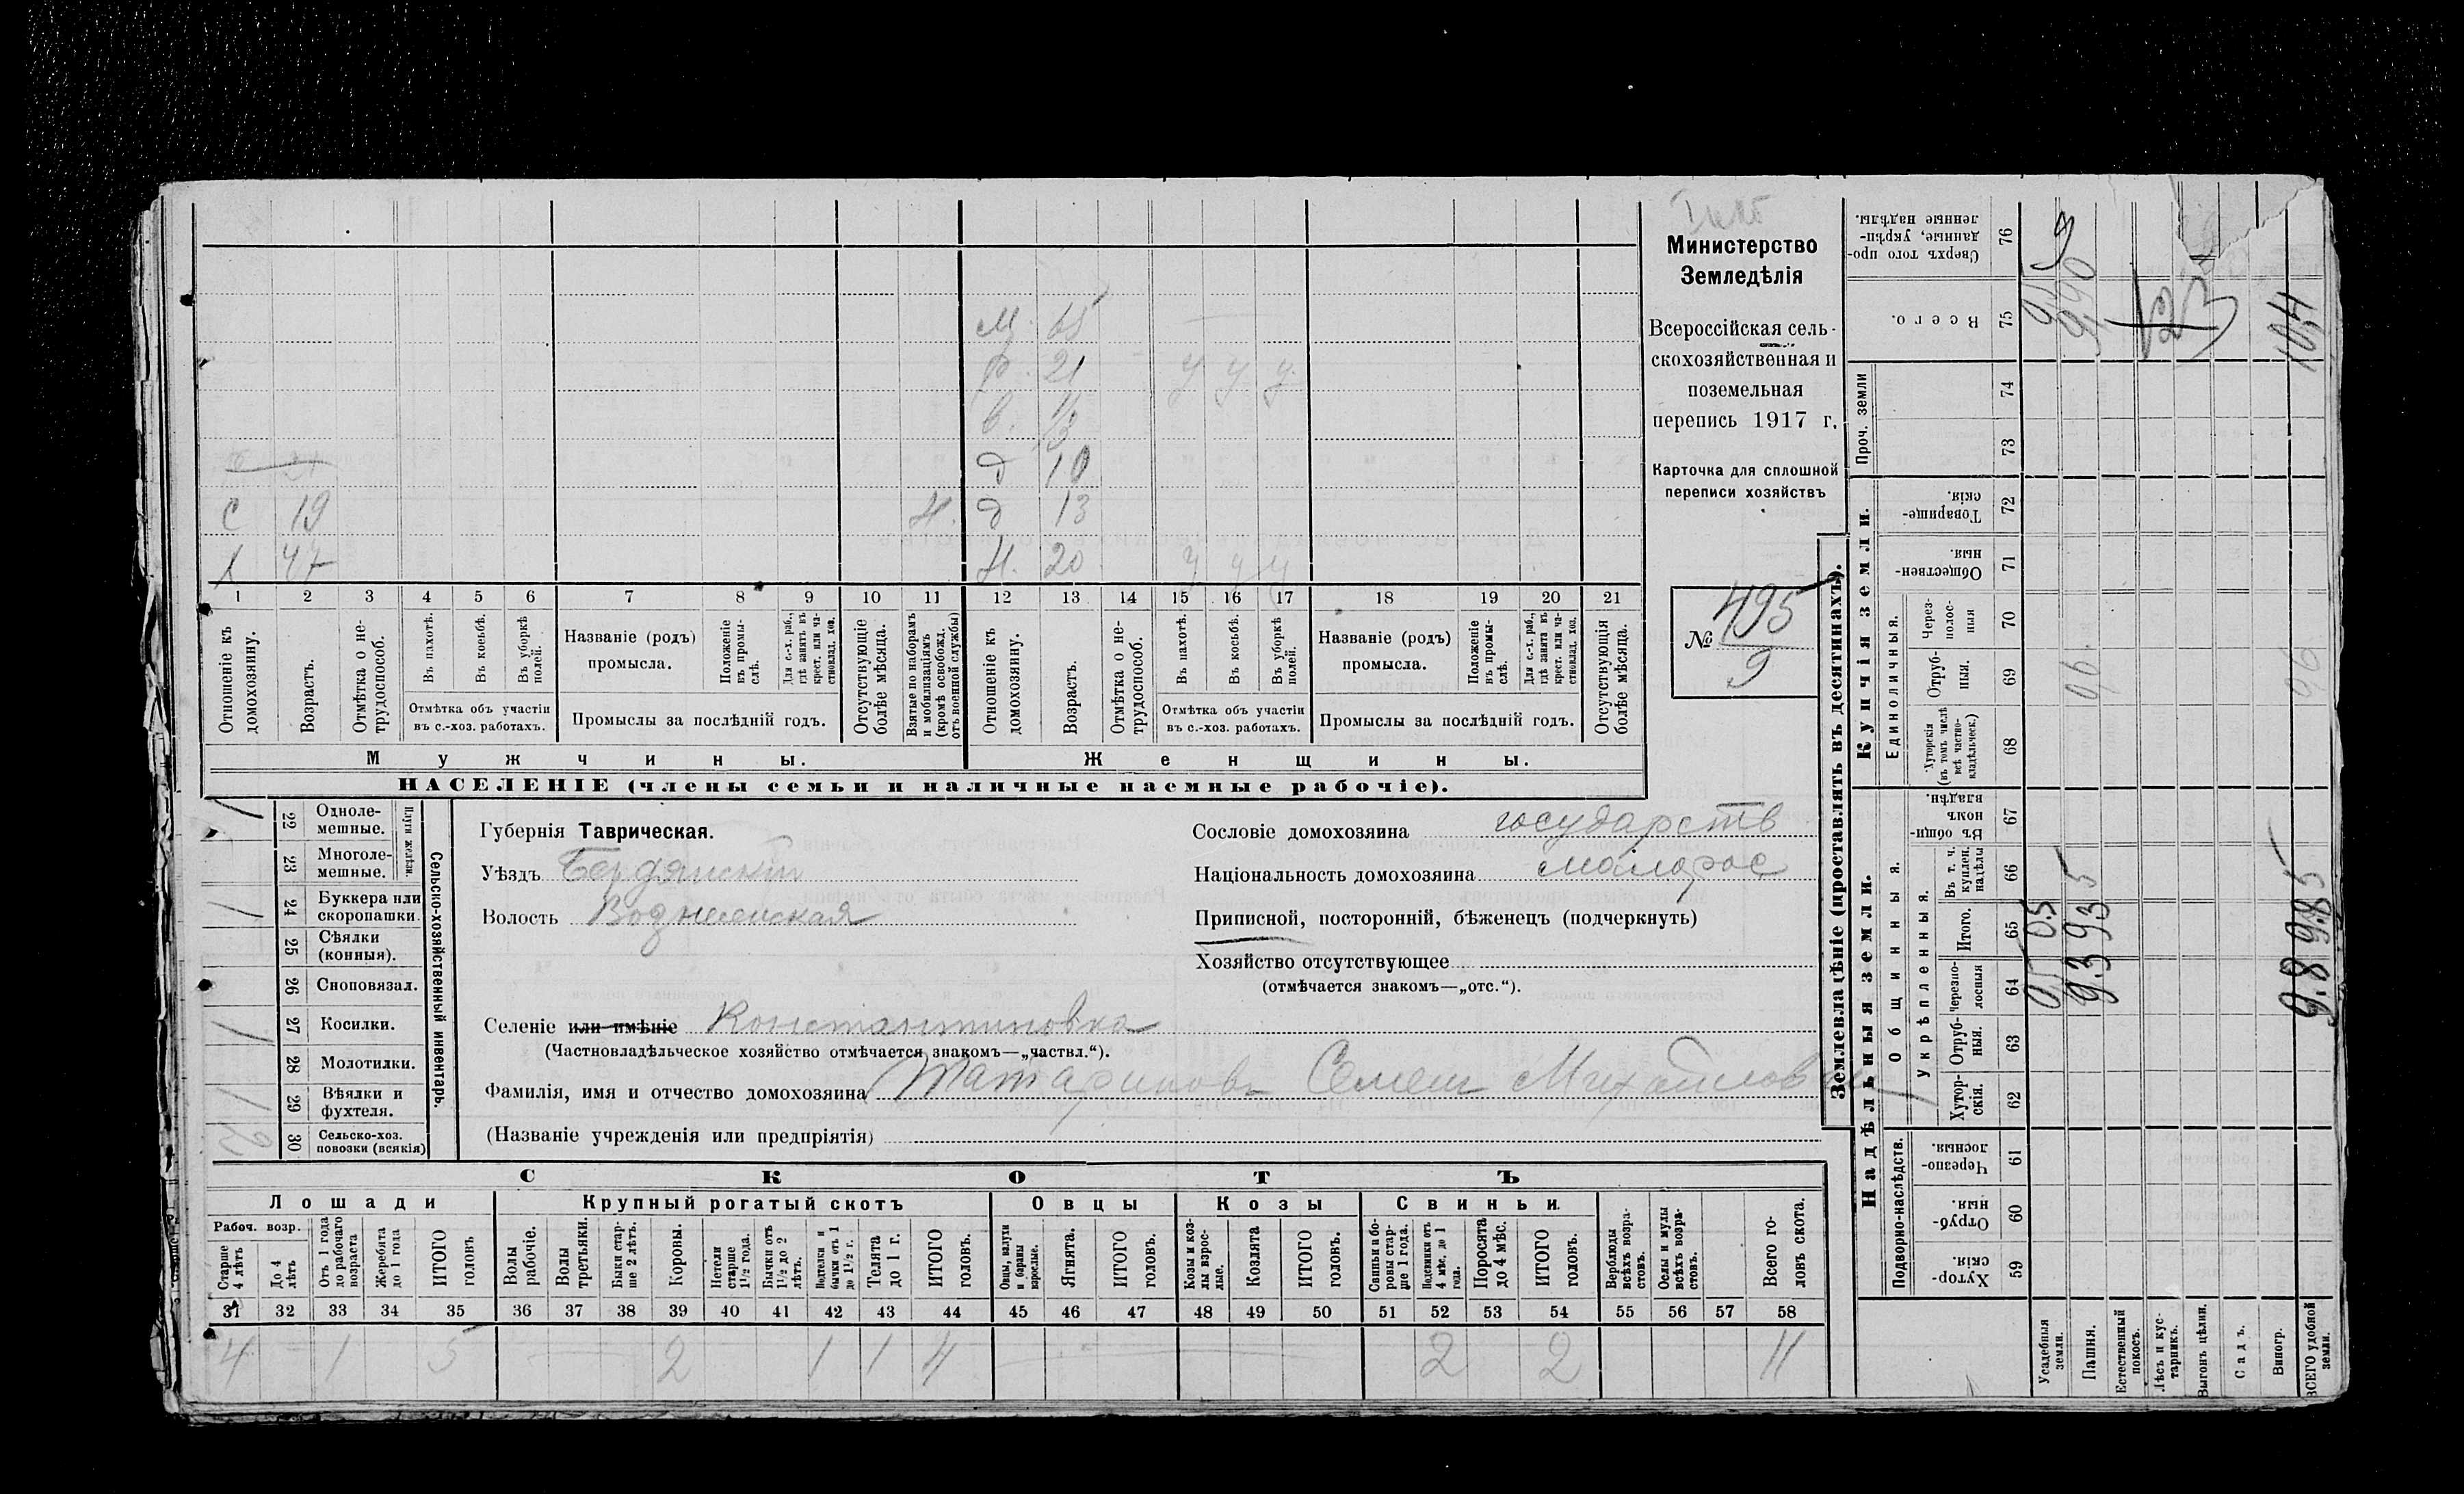 Министерство
Земледѣлія
Всероссійская сель-
скохозяйственная и
поземельная
перепись 1917 г.
Карточка для сплошной
переписи хозяйствъ
№ 495
9
М. 65
21 У У У
в.
д 10
С 19 д 13
Х 47 Н. 20 У У У
1 2 3 4 5 6 7 8 9 10 11 12 13 14 15 16 17 18 19 20 21
Отношеніе къ домохозяину.
Возрастъ.
Отмѣтка о не-трудоспособ.
Въ пахотѣ.
Въ косьбѣ.
Въ уборкѣ полей.
Отмѣтка объ участіи
въ с.-хоз. работахъ.
Названіе (родъ)
промысла.
Положеніе въ промы-слѣ.
Для с.-х. раб., гдѣ занятъ въ крест. или ча-стновлад. хоз.
Промыслы за послѣдній годъ.
Отсутствующіе болѣе мѣсяца.
Взятые по наборамъ и мобилизаціямъ (кромѣ освобожд. отъ военной службы)
Отношеніе къ домохозяину.
Возрастъ.
Отмѣтка о не-трудоспособ.
Въ пахотѣ.
Въ косьбѣ.
Въ уборкѣ полей.
Отмѣтка объ участіи
въ с.-хоз. работахъ.
Названіе (родъ)
промысла.
Положеніе въ промы-слѣ.
Для с.-х. раб., гдѣ занята въ крест. или ча-стновлад. хоз.
Промыслы за послѣдній годъ.
Отсутствующія болѣе мѣсяца.
Мужчины. Женщины.
НАСЕЛЕНІЕ (члены семьи и наличные наемные рабочіе).
Сельско-хозяйственный инвентарь.
Плуги желѣзн.
22 Одноле-мешные. 1
23 Многоле-мешные.
24 Буккера или скоропашки. 1
25 Сѣялки (конныя).
26 Сноповязал.
27 Косилки. 1
28 Молотилки.
29 Вѣялки и фухтеля. 1
30 Сельско-хоз. повозки (всякія) 2
Губернія Таврическая.
Уѣздъ Бердянскій
Волость
Селеніе или имѣніе Константиновка
(Частновладѣльческое хозяйство отмѣчается знакомъ—„частвл.“).
Фамилія, имя и отчество домохозяина Татариновъ Семенъ Михайлов
(Названіе учрежденія или предпріятія)
Сословіе домохозяина государств
Національность домохозяина малорос
Приписной, посторонній, бѣженецъ (подчеркнуть)
Хозяйство отсутствующее
(отмѣчается знакомъ—„отс.“).
СКОТЪ
Лошади Крупный рогатый скотъ Овцы Козы Свиньи
Рабоч. возр.
Старше 4 лѣтъ
До 4 лѣтъ
Отъ 1 года до рабочаго возраста
Жеребята до 1 года
ИТОГО головъ
Волы рабочіе.
Волы третьяки.
Быки стар-ше 2 лѣтъ.
Коровы.
Нетели старше 1½ года.
Бычки отъ 1½ до 2 лѣтъ.
Подтелки и бычки отъ 1 до 1½ г.
Телята до 1 г.
ИТОГО головъ.
Овцы, валухи и бараны взрослые.
Ягнята.
ИТОГО головъ.
Козы и коз-лы взрос-лые.
Козлята
ИТОГО головъ.
Свиньи и бо-ровы стар-ше 1 года.
Подсвинки отъ 4 мѣс. до 1 года.
Поросята до 4 мѣс.
ИТОГО головъ.
Верблюды всѣхъ возра-стовъ.
Ослы и мулы всѣхъ возра-стовъ.
Всего го-ловъ скота.
31 32 33 34 35 36 37 38 39 40 41 42 43 44 45 46 47 48 49 50 51 52 53 54 55 56 57 58
4 1 5 2 1 1 4 2 2 11
Землевладѣніе (проставлять въ десятинахъ).
Надѣльныя земли.
Подворно-наслѣдств.
Хутор-скія. 59
Отруб-ныя. 60
Черезпо-лосныя. 61
Общинныя.
Укрѣпленныя.
Хутор-скія. 62
Отруб-ныя. 63
Черезпо-лосныя 64
Итого. 65
Въ т. ч. куплен. надѣлы 66
Въ общи-номъ владѣн. 67
Купчія земли.
Единоличныя.
Хуторскія (въ томъ числѣ всѣ частно-владѣльческ.) 68
Отруб-ныя. 69
Через-полос-ныя 70
Обществен-ныя. 71
Товарище-скія. 72
Проч. земли
73
74
Всего. 75
Сверхъ того про-данные, укрѣп-ленные надѣлы. 76
Усадебныя земли. 05 05
Пашня. 9.3 9.35 96. 990
Естественный покосъ.
Лѣсъ и кус-тарникъ.
Выгонъ цѣлин.
Садъ.
Виногр.
ВСЕГО удобной земли. 9.8 9.85 96 104